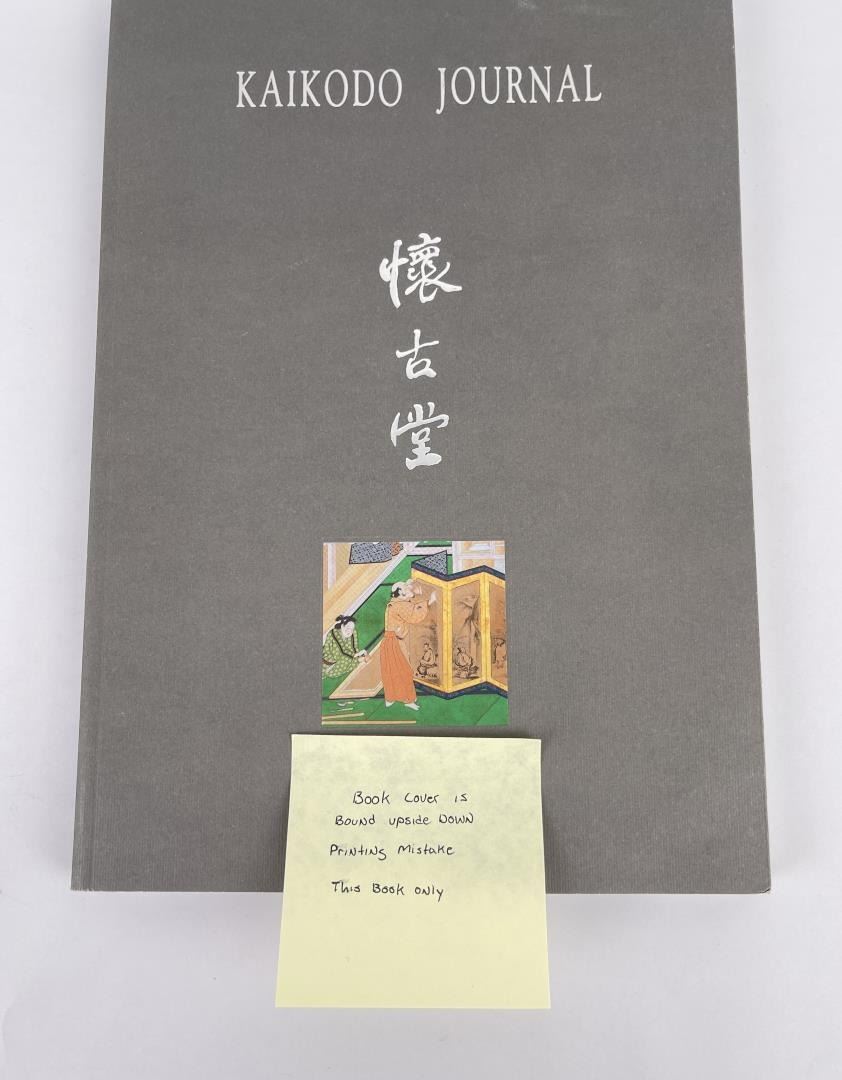 KAIKODO JOURNAL
懷
古
堂
Book Cover is
Bound upside Down
Printing Mistake
This Book only